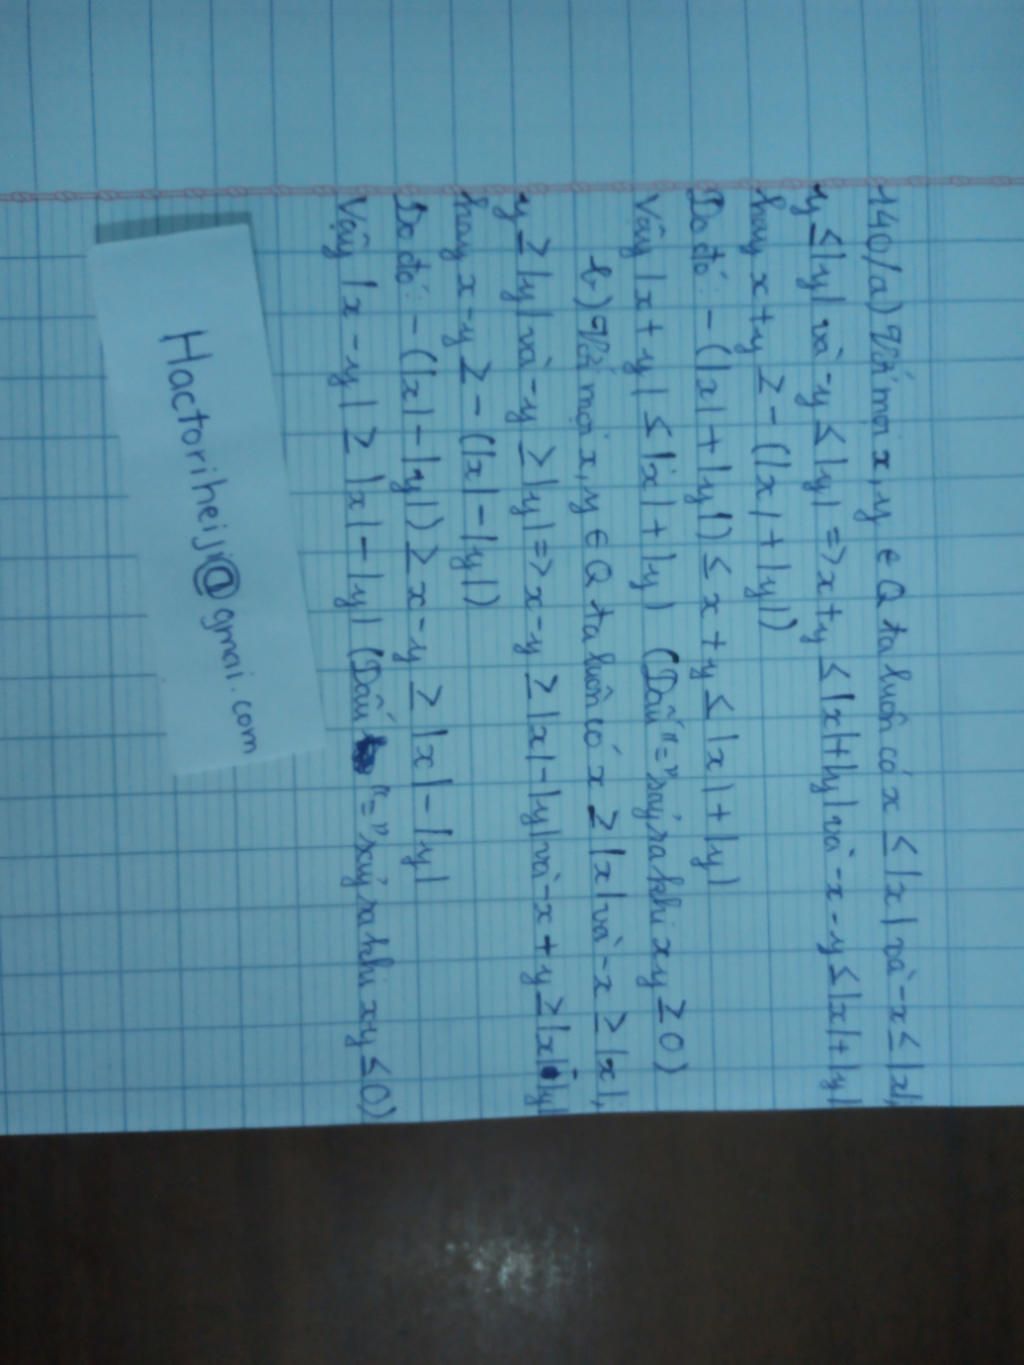 140/a) Với mọi x, y ∈ Q ta luôn có x ≤ |x| và -x ≤ |x|,
y ≤ |y| và -y ≤ |y| => x+y ≤ |x|+|y| và -x-y ≤ |x|+|y|
hay x+y ≥ -(|x|+|y|)
Do đó: -(|x|+|y|) ≤ x+y ≤ |x|+|y|
Vậy |x+y| ≤ |x|+|y| (Dấu "=" xảy ra khi xy ≥ 0)
b) Với mọi x, y ∈ Q ta luôn có x ≥ |x| và -x ≥ |x|,
y ≥ |y| và -y ≥ |y| => x-y ≥ |x|-|y| và -x+y ≥ |x|-|y|
hay x-y ≥ -(|x|-|y|)
Do đó: -(|x|-|y|) ≥ x-y ≥ |x|-|y|
Vậy |x-y| ≥ |x|-|y| (Dấu "=" xảy ra khi xy ≤ 0)
Hactoriheiji@gmai.com